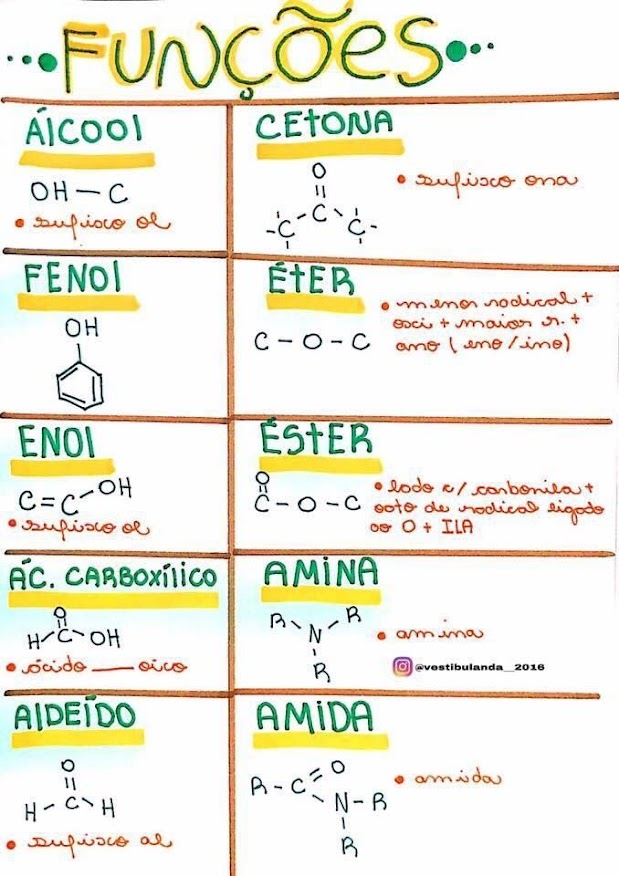 FUNÇÕES
ÁlCOOl
OH — C
• sufisco ol
CETONA
O
C C C
• sufisco ona
FENOl
OH
ÉTER
C - O - C
• menor radical +
oxi + maior r. +
ano (eno/ino)
ENOl
C = C - OH
• sufisco ol
ÉSTER
O
C - O - C
• lado c/ carbonila +
oato de radical ligado
ao O + ILA
ÁC. CARBOXÍlICO
O
H - C - OH
• ácido ___ oico
AMINA
R R
N
R
• amina
@vestibulanda__2016
AlDEÍDO
O
H - C - H
• sufisco al
AMIDA
O
R - C
N - R
R
• amida